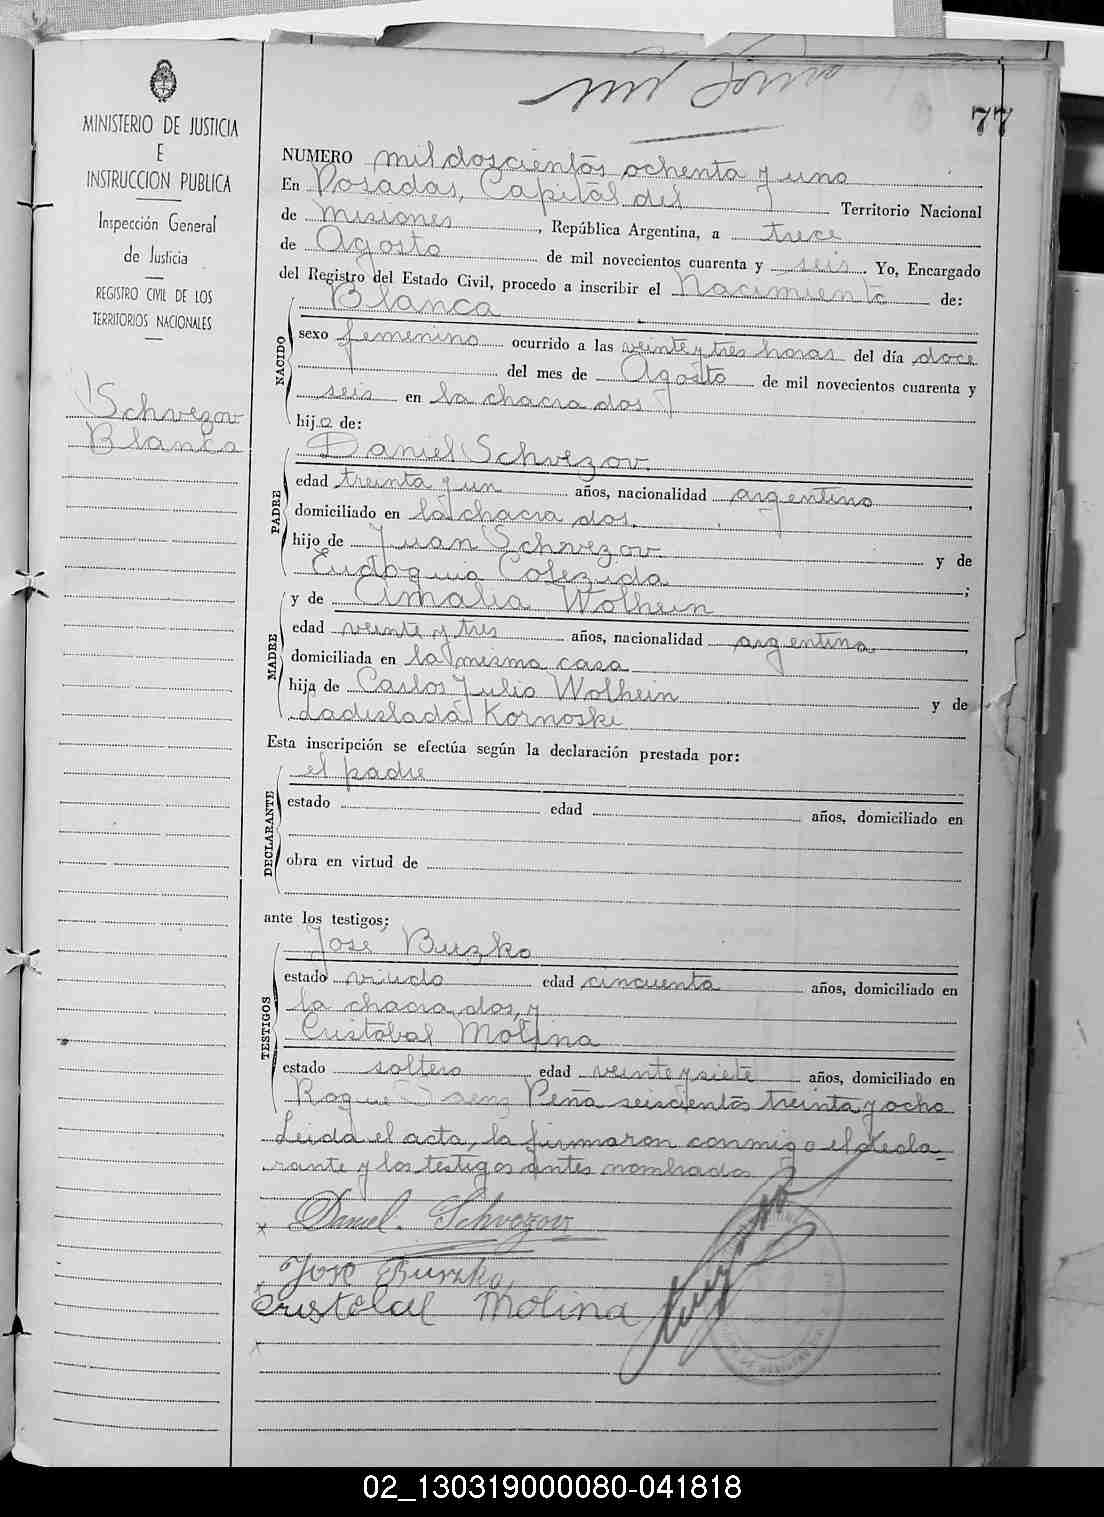 77
MINISTERIO DE JUSTICIA
E
INSTRUCCION PUBLICA
Inspección General
de Justicia
REGISTRO CIVIL DE LOS
TERRITORIOS NACIONALES
Schvezov
Blanca
NUMERO mil doscientos ochenta y uno
En Posadas, Capital del Territorio Nacional
de Misiones, República Argentina, a trece
de Agosto de mil novecientos cuarenta y seis. Yo, Encargado
del Registro del Estado Civil, procedo a inscribir el Nacimiento de:
NACIDO
Blanca
sexo femenino ocurrido a las veinte y tres horas del día doce
del mes de Agosto de mil novecientos cuarenta y
seis en la chacra dos
hija de:
PADRE
Daniel Schvezov.
edad treinta y un años, nacionalidad argentino,
domiciliado en la chacra dos,
hijo de Juan Schvezov y de
Eudoquia Colezuda;
MADRE
y de Amalia Wolhein
edad veinte y tres años, nacionalidad argentina,
domiciliada en la misma casa
hija de Carlos Julio Wolhein y de
Ladislada Kornoski
Esta inscripción se efectúa según la declaración prestada por:
DECLARANTE
el padre
estado edad años, domiciliado en
obra en virtud de
ante los testigos;
TESTIGOS
José Buzko
estado viudo edad cincuenta años, domiciliado en
la chacra dos, y
Cristobal Molina
estado soltero edad veinte y siete años, domiciliado en
Roque Saenz Peña seiscientos treinta y ocho
Leida el acta, la firmaron conmigo el decla-
rante y los testigos antes nombrados
Daniel. Schvezov
José Buzko,
Cristobal Molina
02_130319000080-041818